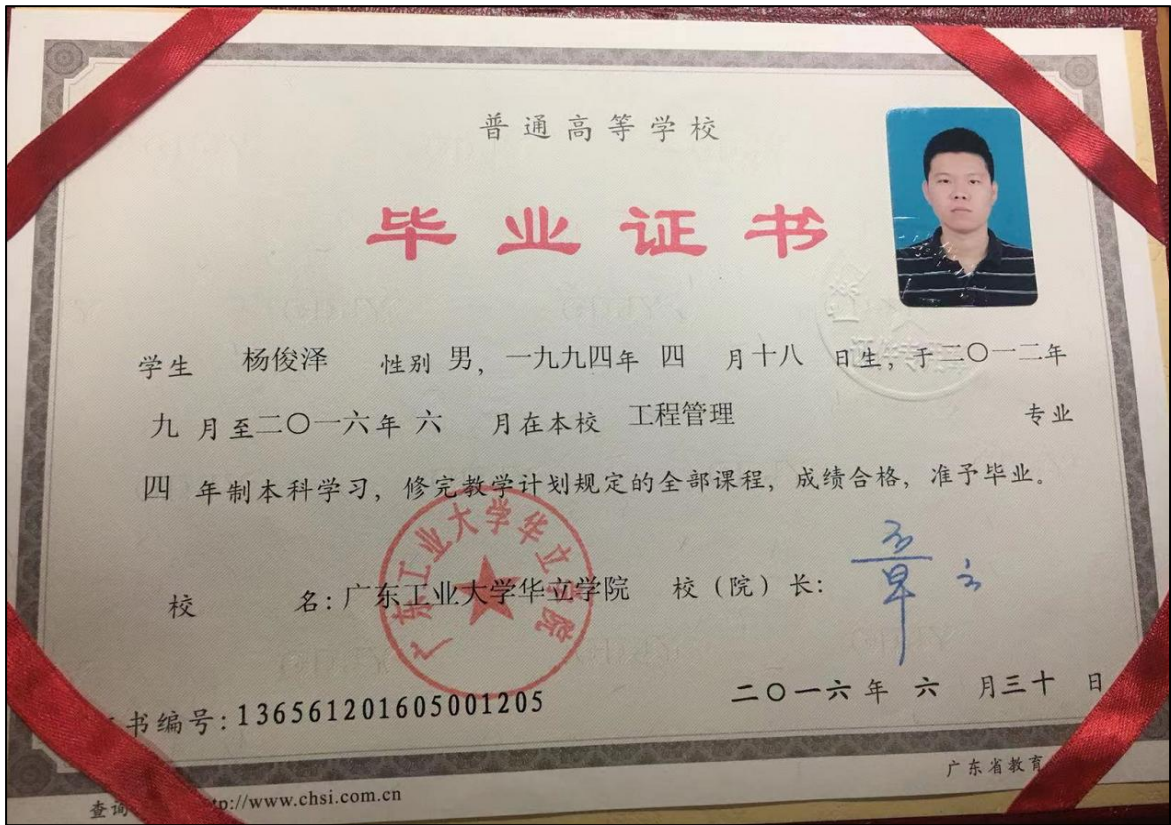 普通高等学校
毕业证书
学生 杨俊泽 性别 男，一九九四年 四 月十八 日生，于二〇一二年
九 月至二〇一六年 六 月在本校 工程管理 专业
四 年制本科学习，修完教学计划规定的全部课程，成绩合格，准予毕业。
广东工业大学华立学院
校 名：广东工业大学华立学院 校（院）长：
书编号：136561201605001205
二〇一六年 六 月三十 日
广东省教育
查询 tp://www.chsi.com.cn